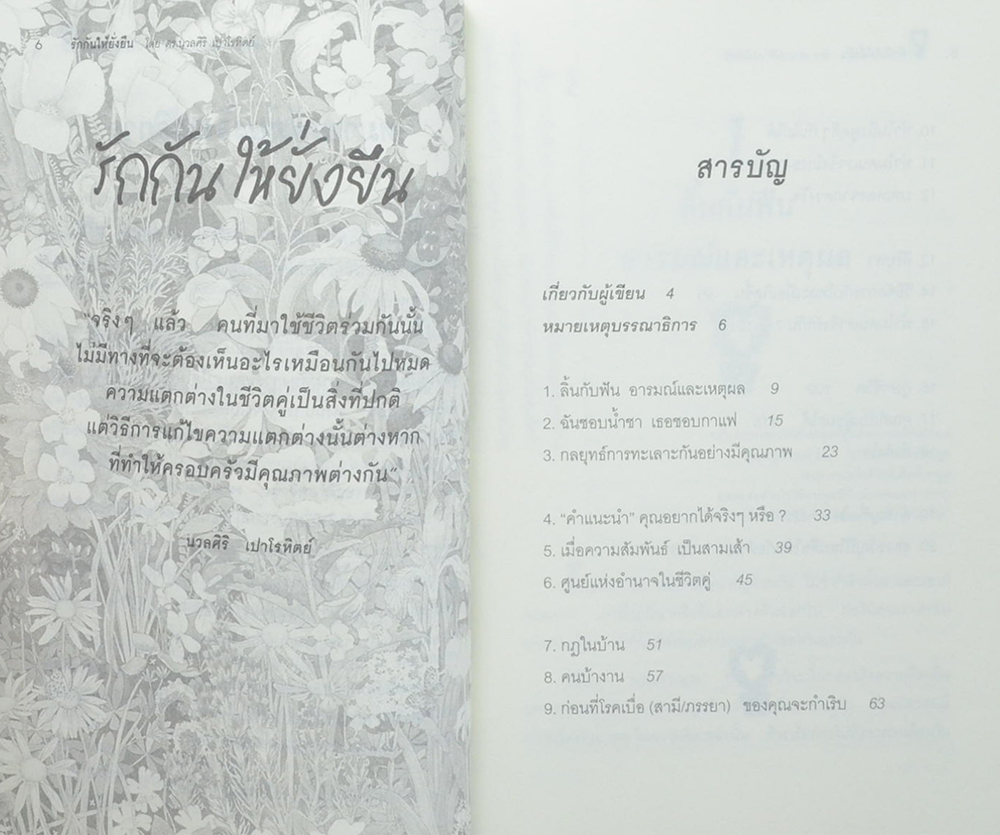 6 รักกันให้ยั่งยืน โดย ดร.นวลศิริ เปาโรหิตย์
รักกันให้ยั่งยืน
"จริงๆ แล้ว คนที่มาใช้ชีวิตรวมกันนั้น
ไม่มีทางที่จะต้องเห็นอะไรเหมือนกันไปหมด
ความแตกต่างในชีวิตคู่เป็นสิ่งที่ปกติ
แต่วิธีการแก้ไขความแตกต่างนั้นต่างหาก
ที่ทำให้ครอบครัวมีคุณภาพต่างกัน"
นวลศิริ เปาโรหิตย์
สารบัญ
เกี่ยวกับผู้เขียน 4
หมายเหตุบรรณาธิการ 6
1. ลิ้นกับฟัน อารมณ์และเหตุผล 9
2. ฉันชอบน้ำชา เธอชอบกาแฟ 15
3. กลยุทธ์การทะเลาะกันอย่างมีคุณภาพ 23
4. "คำแนะนำ" คุณอยากได้จริงๆ หรือ ? 33
5. เมื่อความสัมพันธ์ เป็นสามเส้า 39
6. ศูนย์แห่งอำนาจในชีวิตคู่ 45
7. กฎในบ้าน 51
8. คนบ้างาน 57
9. ก่อนที่โรคเบื่อ (สามี/ภรรยา) ของคุณจะกำเริบ 63